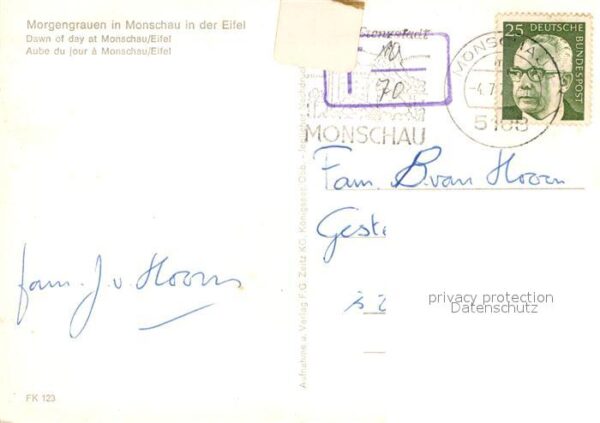 Morgengrauen in Monschau in der Eifel
Dawn of day at Monschau/Eifel
Aube du jour à Monschau/Eifel
T
10
70
MONSCHAU
MONSCHAU
-4.7
5108
25
DEUTSCHE
BUNDESPOST
Fam. B. van Hoorn
Geste
is 2
fam. J. v. Hoorn
Aufnahme u. Verlag F.G. Zeitz KG, Königssee/Obb.
privacy protection
Datenschutz
FK 123